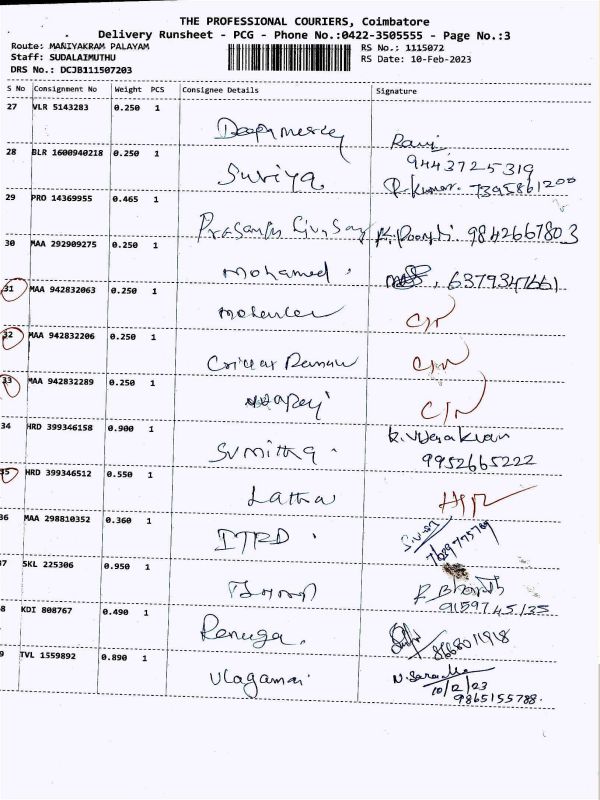 THE PROFESSIONAL COURIERS, Coimbatore
Delivery Runsheet - PCG - Phone No.:0422-3505555 - Page No.:3
Route: MANIYAKRAM PALAYAM RS No.: 1115072
Staff: SUDALAIMUTHU RS Date: 10-Feb-2023
DRS No.: DCJB111507203
S No Consignment No Weight PCS Consignee Details Signature
27 VLR 5143283 0.250 1
Ravi
9443725319
28 BLR 1600940218 0.250 1
Suriya R.Kumar. 7395861200
29 PRO 14369955 0.465 1
9842667803
30 MAA 292909275 0.250 1
Mohamed. 6379347661
31 MAA 942832063 0.250 1
32 MAA 942832206 0.250 1
33 MAA 942832289 0.250 1
34 HRD 399346158 0.900 1
Sumitha. 9952665222
35 HRD 399346512 0.550 1
Latha
36 MAA 298810352 0.360 1
ITRD.
7 SKL 225306 0.950 1
R Bharath
9159745135
8 KDI 808767 0.490 1
Renuga. 8668011918
9 TVL 1559892 0.890 1
Ulagamai
10/2/23
9865155788.